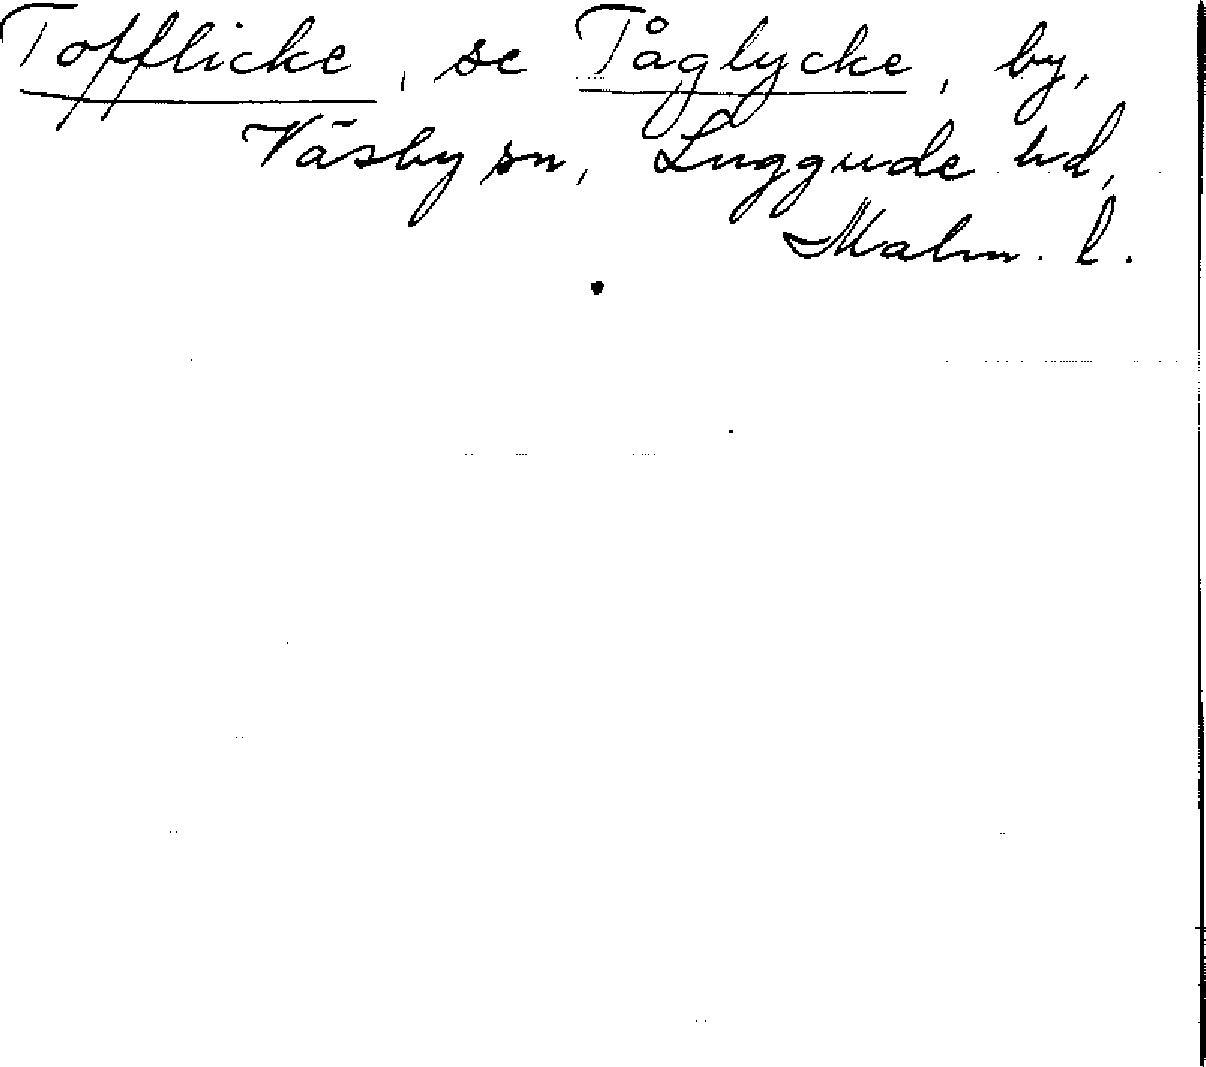 Tofflicke, se Tåglycke, by,
Väsby sn, Luggude hd,
Malm. l.